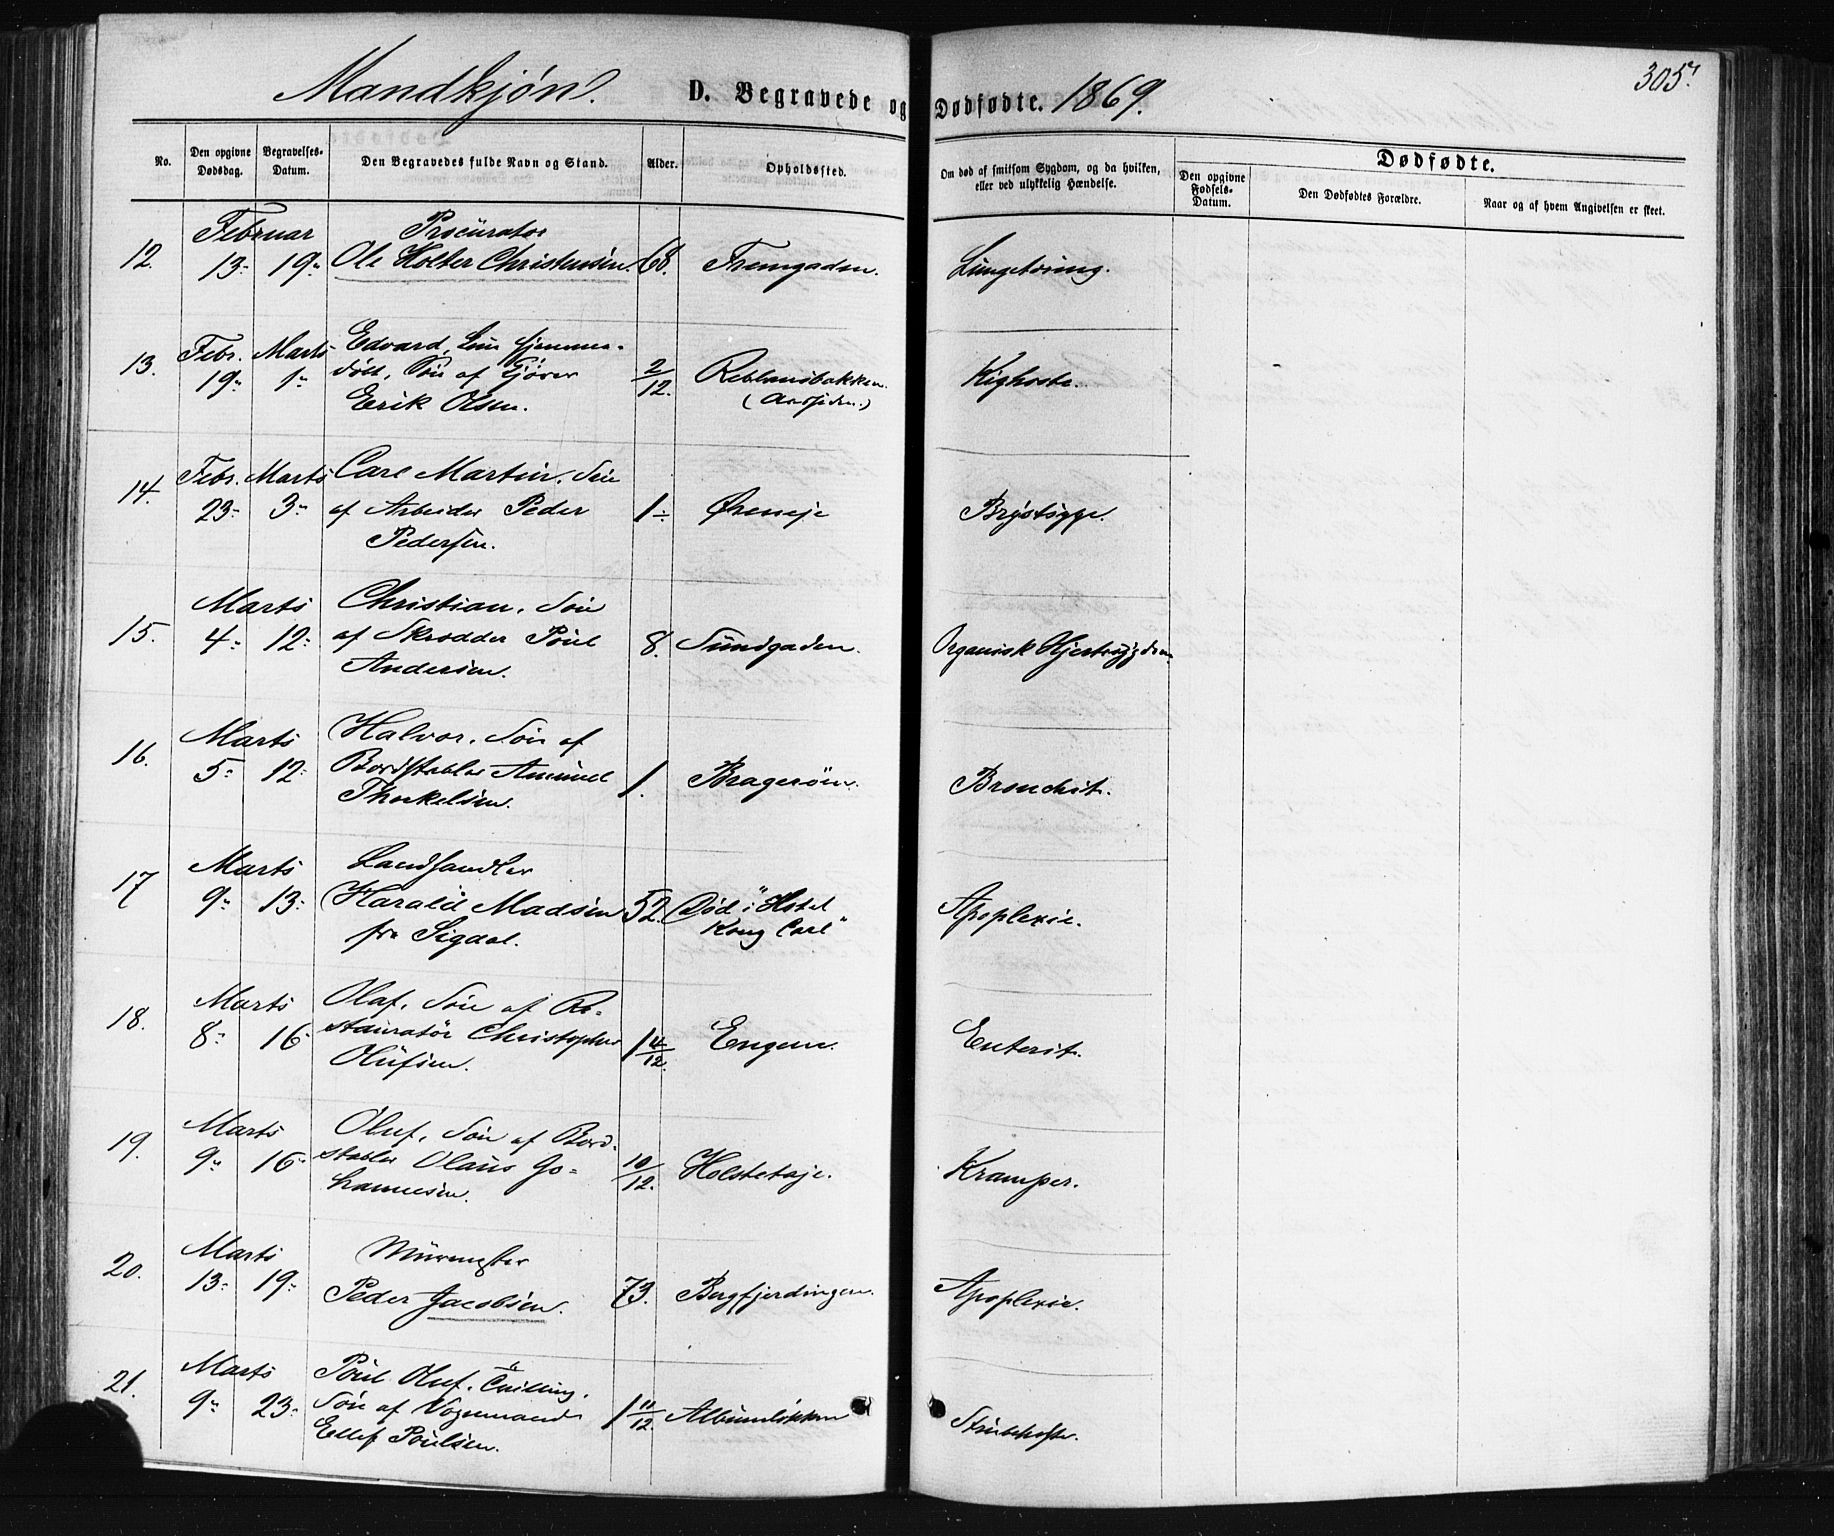 Mandkjøn. D. Begravede og Dødfødte. 1869. 305.
No. Den opgivne Dødsdag. Begravelses-Datum. Den Begravedes fulde Navn og Stand. Alder. Opholdssted. Om død af smitsom Sygdom, og da hvilken, eller ved ulykkelig Hændelse. Dødfødte.
Den opgivne Fødsels-Datum. Den Dødfødtes Forældre. Naar og af hvem Angivelsen er skeet.
Februar Procurator
12. 13. 19. Ole Holter Christensen. 68. Tverrgaden. Lungetæring.
Febr. Marts Edvard,
13. 19. 1. død, Søn af Gjører 2/12. Kighoste.
Erik Olsen. (Aassiden.)
Febr. Marts Carl Martin, Søn
14. 23. 3. af Arbeider Peder 1. Øreneje Brystsyge.
Pedersen.
Marts Christian, Søn
15. 4. 12. af Skrædder Poul 8. Sundgaden. Organisk Hjertesygdom
Andersen.
Marts Halvor, Søn af
16. 5. 12. Bordstabler Amund 1. Bragerøen. Bronchit.
Thorkelsen.
Marts Landhandler
17 9. 13. Harald Madsen 52. Død i "Hotel Apoplexie.
fra Sigdal. Kong Carl"
Marts Olaf, Søn af Re-
18. 8. 16. stauratør Christopher 1 4/12. Engene. Enterit.
Olufsen.
Marts Oluf, Søn af Bord-
19. 9. 16. stabler Olaus Jo- 10/12. Holstetøje. Kramper.
hannesen.
Marts Muurmester
20. 13. 19. Peder Jacobsen. 73. Bergfjerdingen. Apoplexie.
Marts Poul Oluf, Tvilling,
21. 9. 23. Søn af Vognmand 1 11/12. Albumløkken Strubehoste.
Ellef Poulsen.